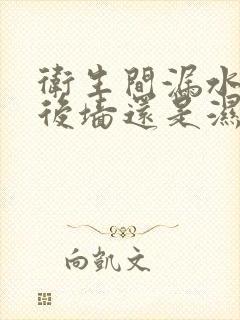 衛生間漏水
後墻還是濕
向凱文